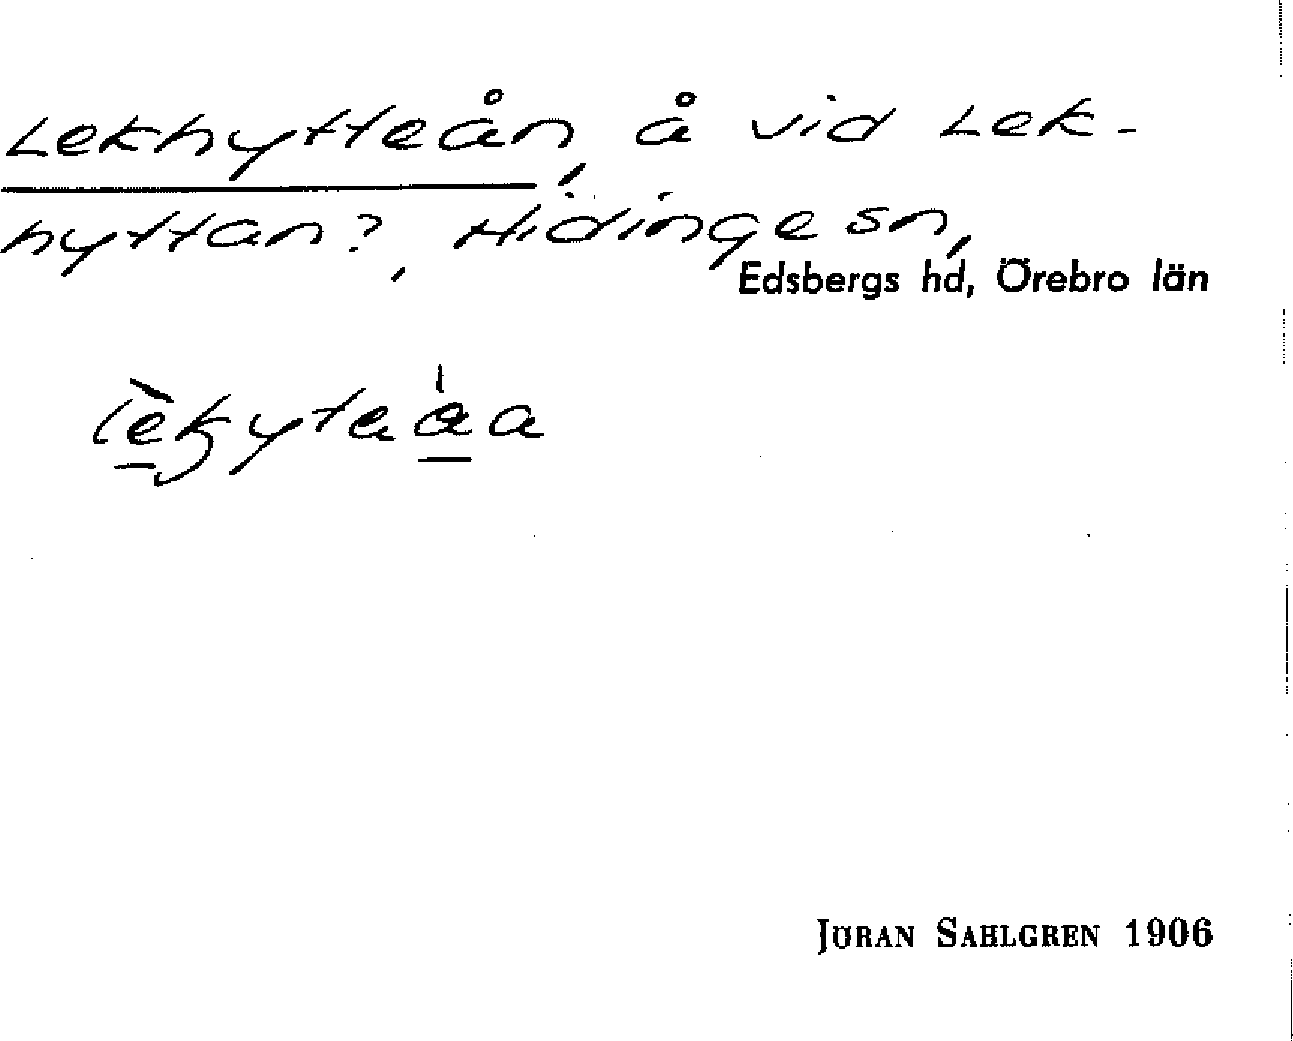 Lekhytteån, å vid Lek-
hyttan?, Hidinge sn,
Edsbergs hd, Örebro län
JÖRAN SAHLGREN 1906